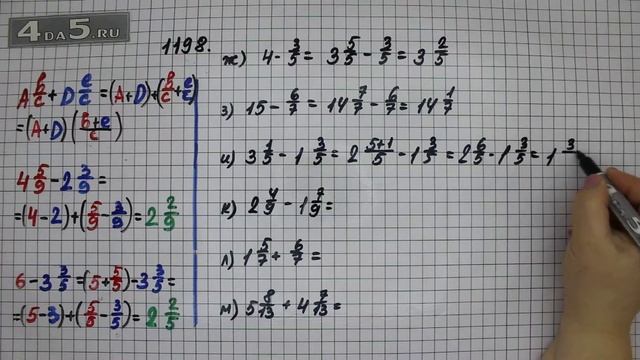 4DA5.RU
1198.
A b/c + D e/c = (A+D)+(b/c + e/c)
= (A+D)(b+e/c)
4 5/9 - 2 3/9 =
= (4-2)+(5/9 - 3/9) = 2 2/9
6 - 3 3/5 = (5+5/5) - 3 3/5 =
= (5-3)+(5/5 - 3/5) = 2 2/5
ж) 4 - 3/5 = 3 5/5 - 3/5 = 3 2/5
з) 15 - 6/7 = 14 7/7 - 6/7 = 14 1/7
и) 3 1/5 - 1 3/5 = 2 5+1/5 - 1 3/5 = 2 6/5 - 1 3/5 = 1 3
к) 2 4/9 - 1 7/9 =
л) 1 5/7 + 6/7 =
м) 5 8/13 + 4 7/13 =